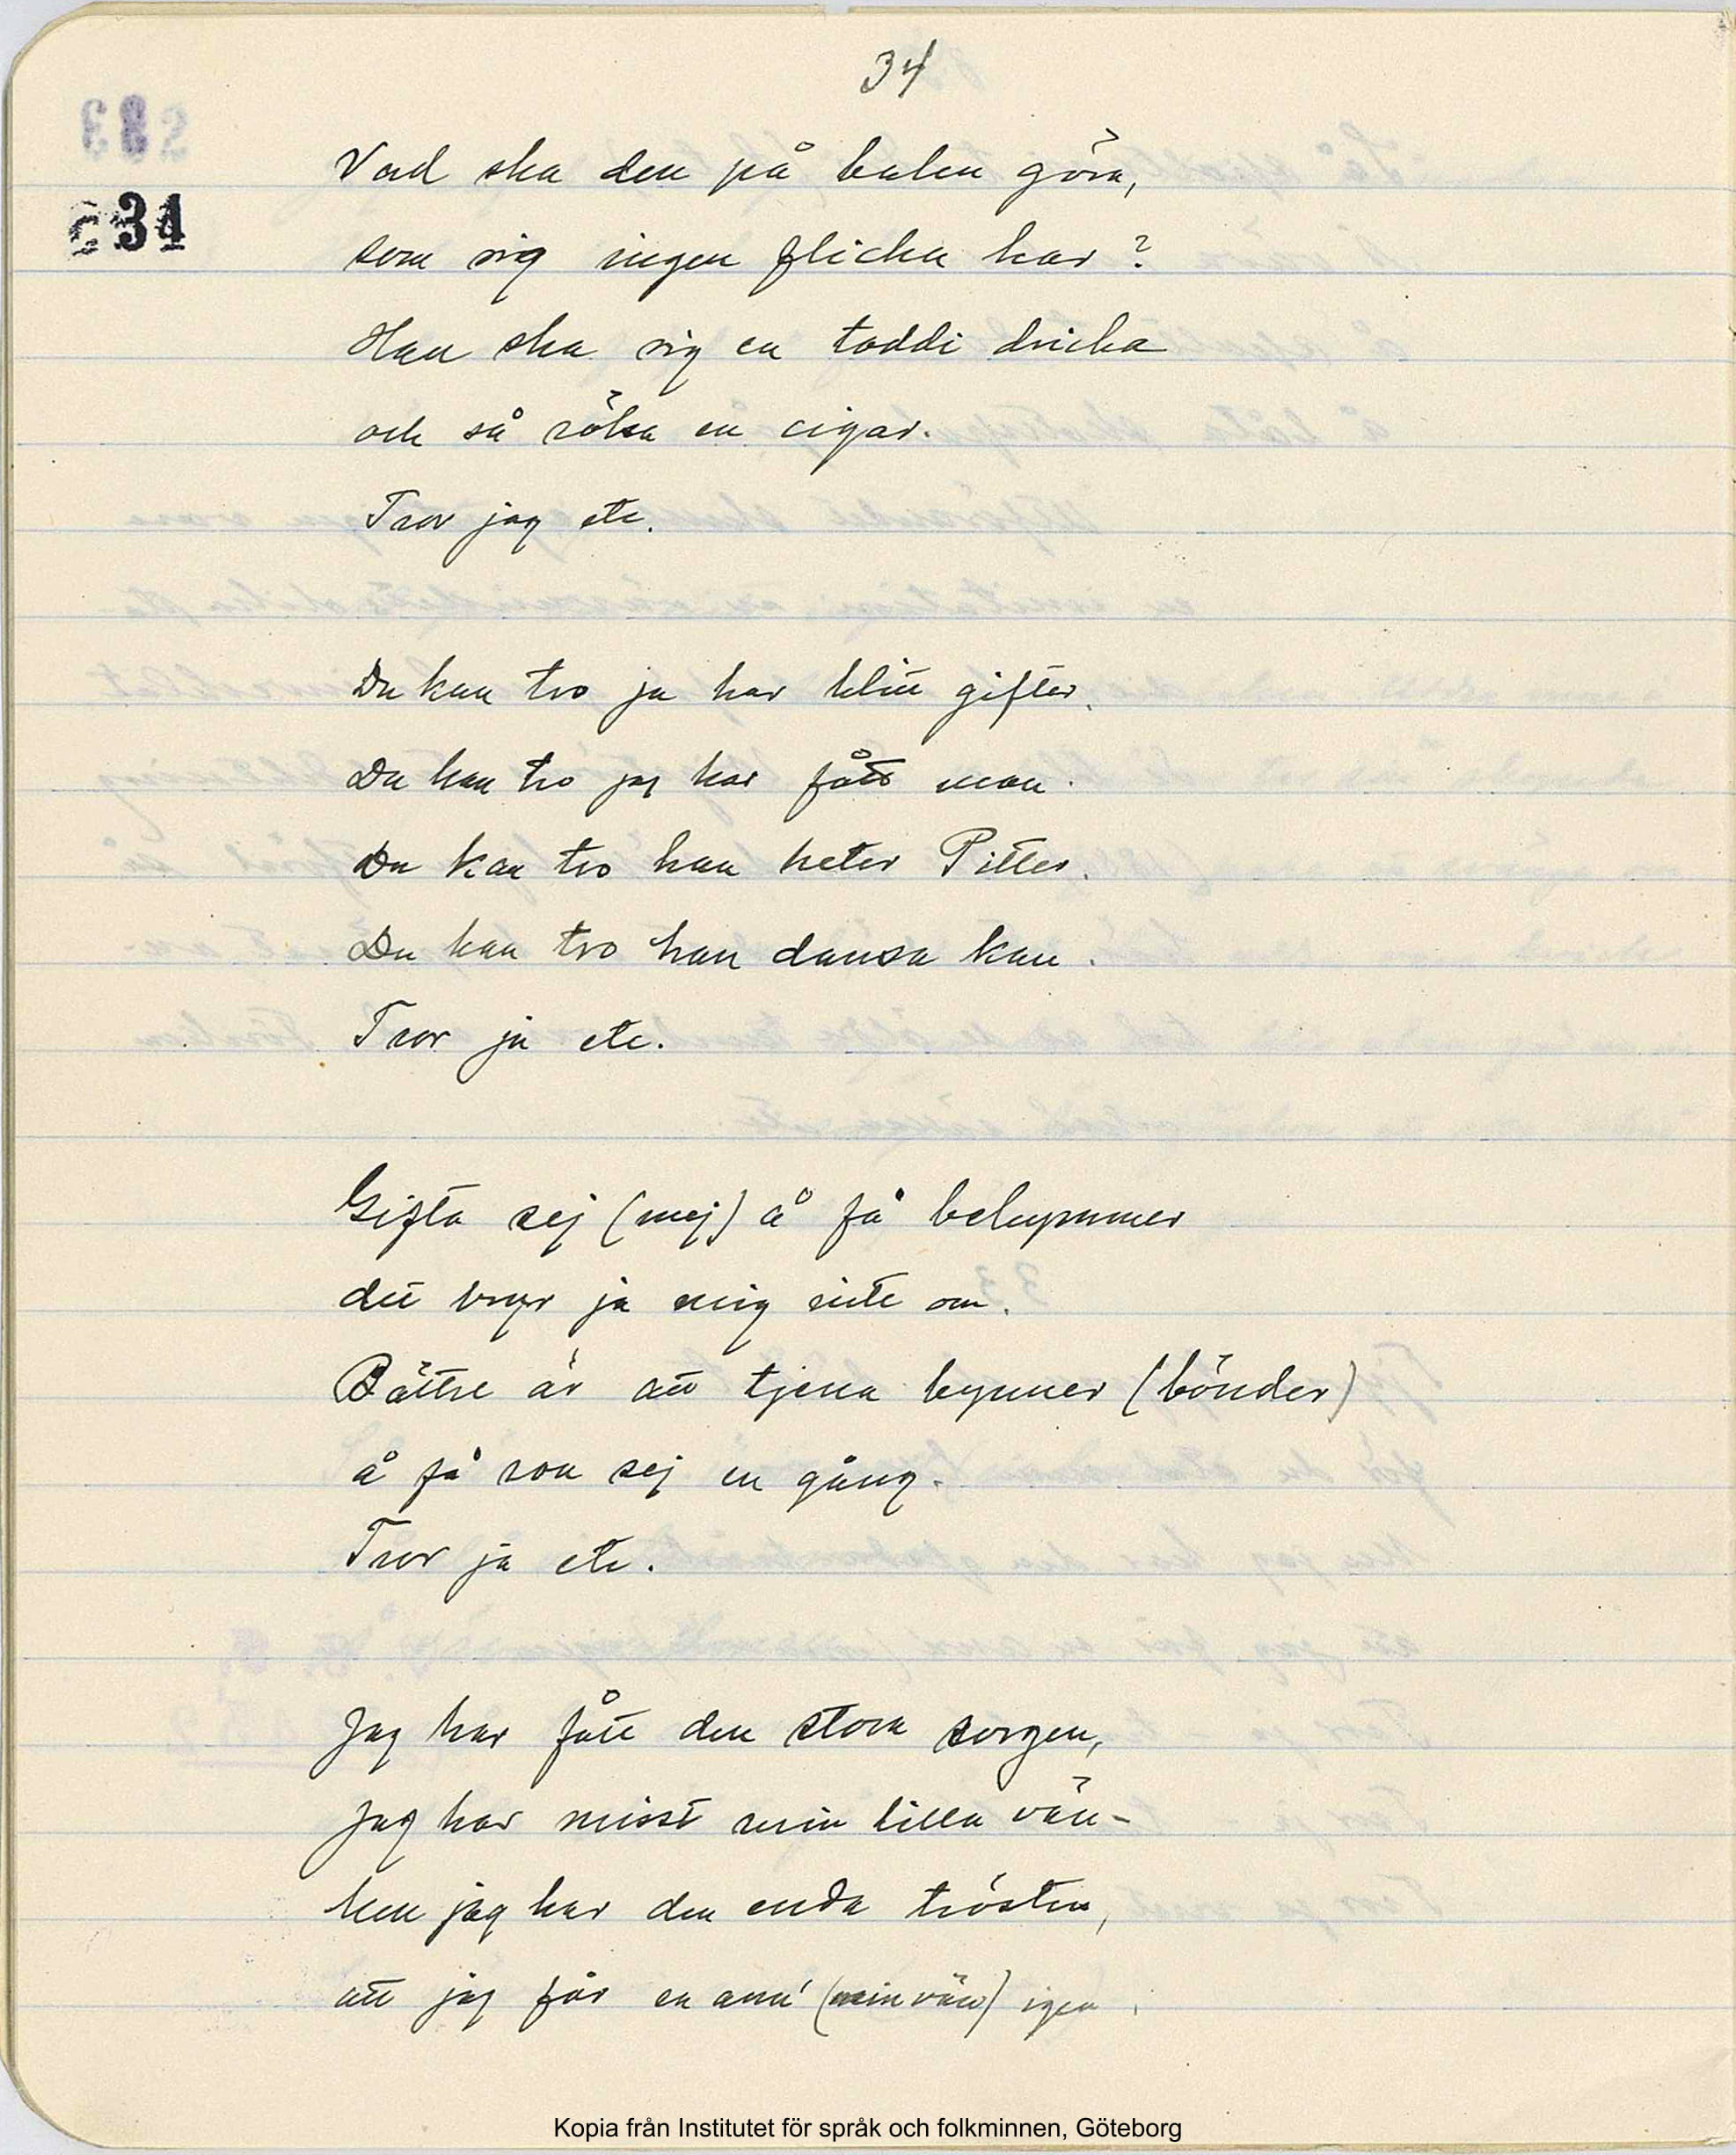 34
34
Vad ska den på balen göra,
som sig ingen flicka har?
Han ska sig en toddi dricka
och så röka en cigar.
Tror jag etc.
Du kan tro ja har blitt gifter.
Du kan tro jag har fått man.
Du kan tro han heter Pitter.
Du kan tro han dansa kan.
Tror ja etc.
Gifta sej (mej) å få bekymmer
det bryr ja mig inte om.
Bättre är att tjena bynner (bönder)
å få roa sej en gång.
Tror ja etc.
Jag har fått den stora sorgen,
Jag har mist min lilla vän-
Men jag har den enda trösten,
att jag får en ann' (min vän) igen.
Kopia från Institutet för språk och folkminnen, Göteborg